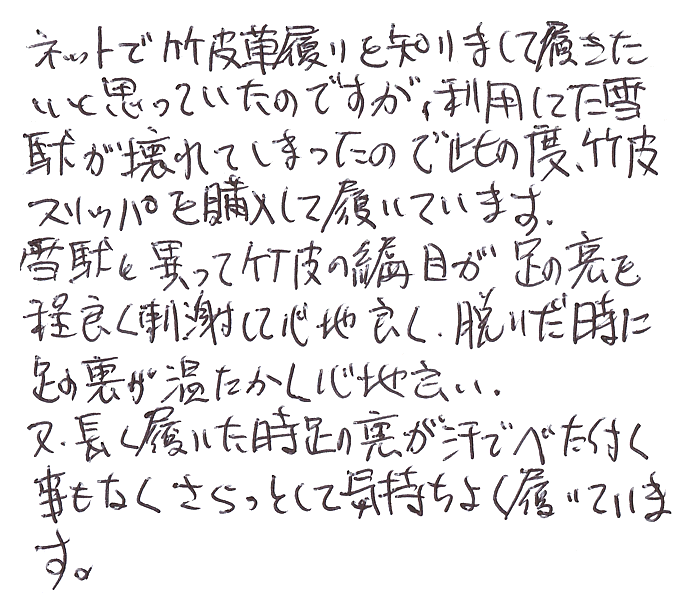 ネットで竹皮草履りを知りまして履きた
いと思っていたのですが、利用してた雪
駄が壊れてしまったので此の度、竹皮
スリッパを購入して履いています.
雪駄と異って竹皮の編目が足の裏を
程良く刺激して心地良く、脱いだ時に
足の裏が温たかく心地良い.
又、長く履いた時足の裏が汗でべた付く
事もなくさらっとして気持ちよく履いていま
す。